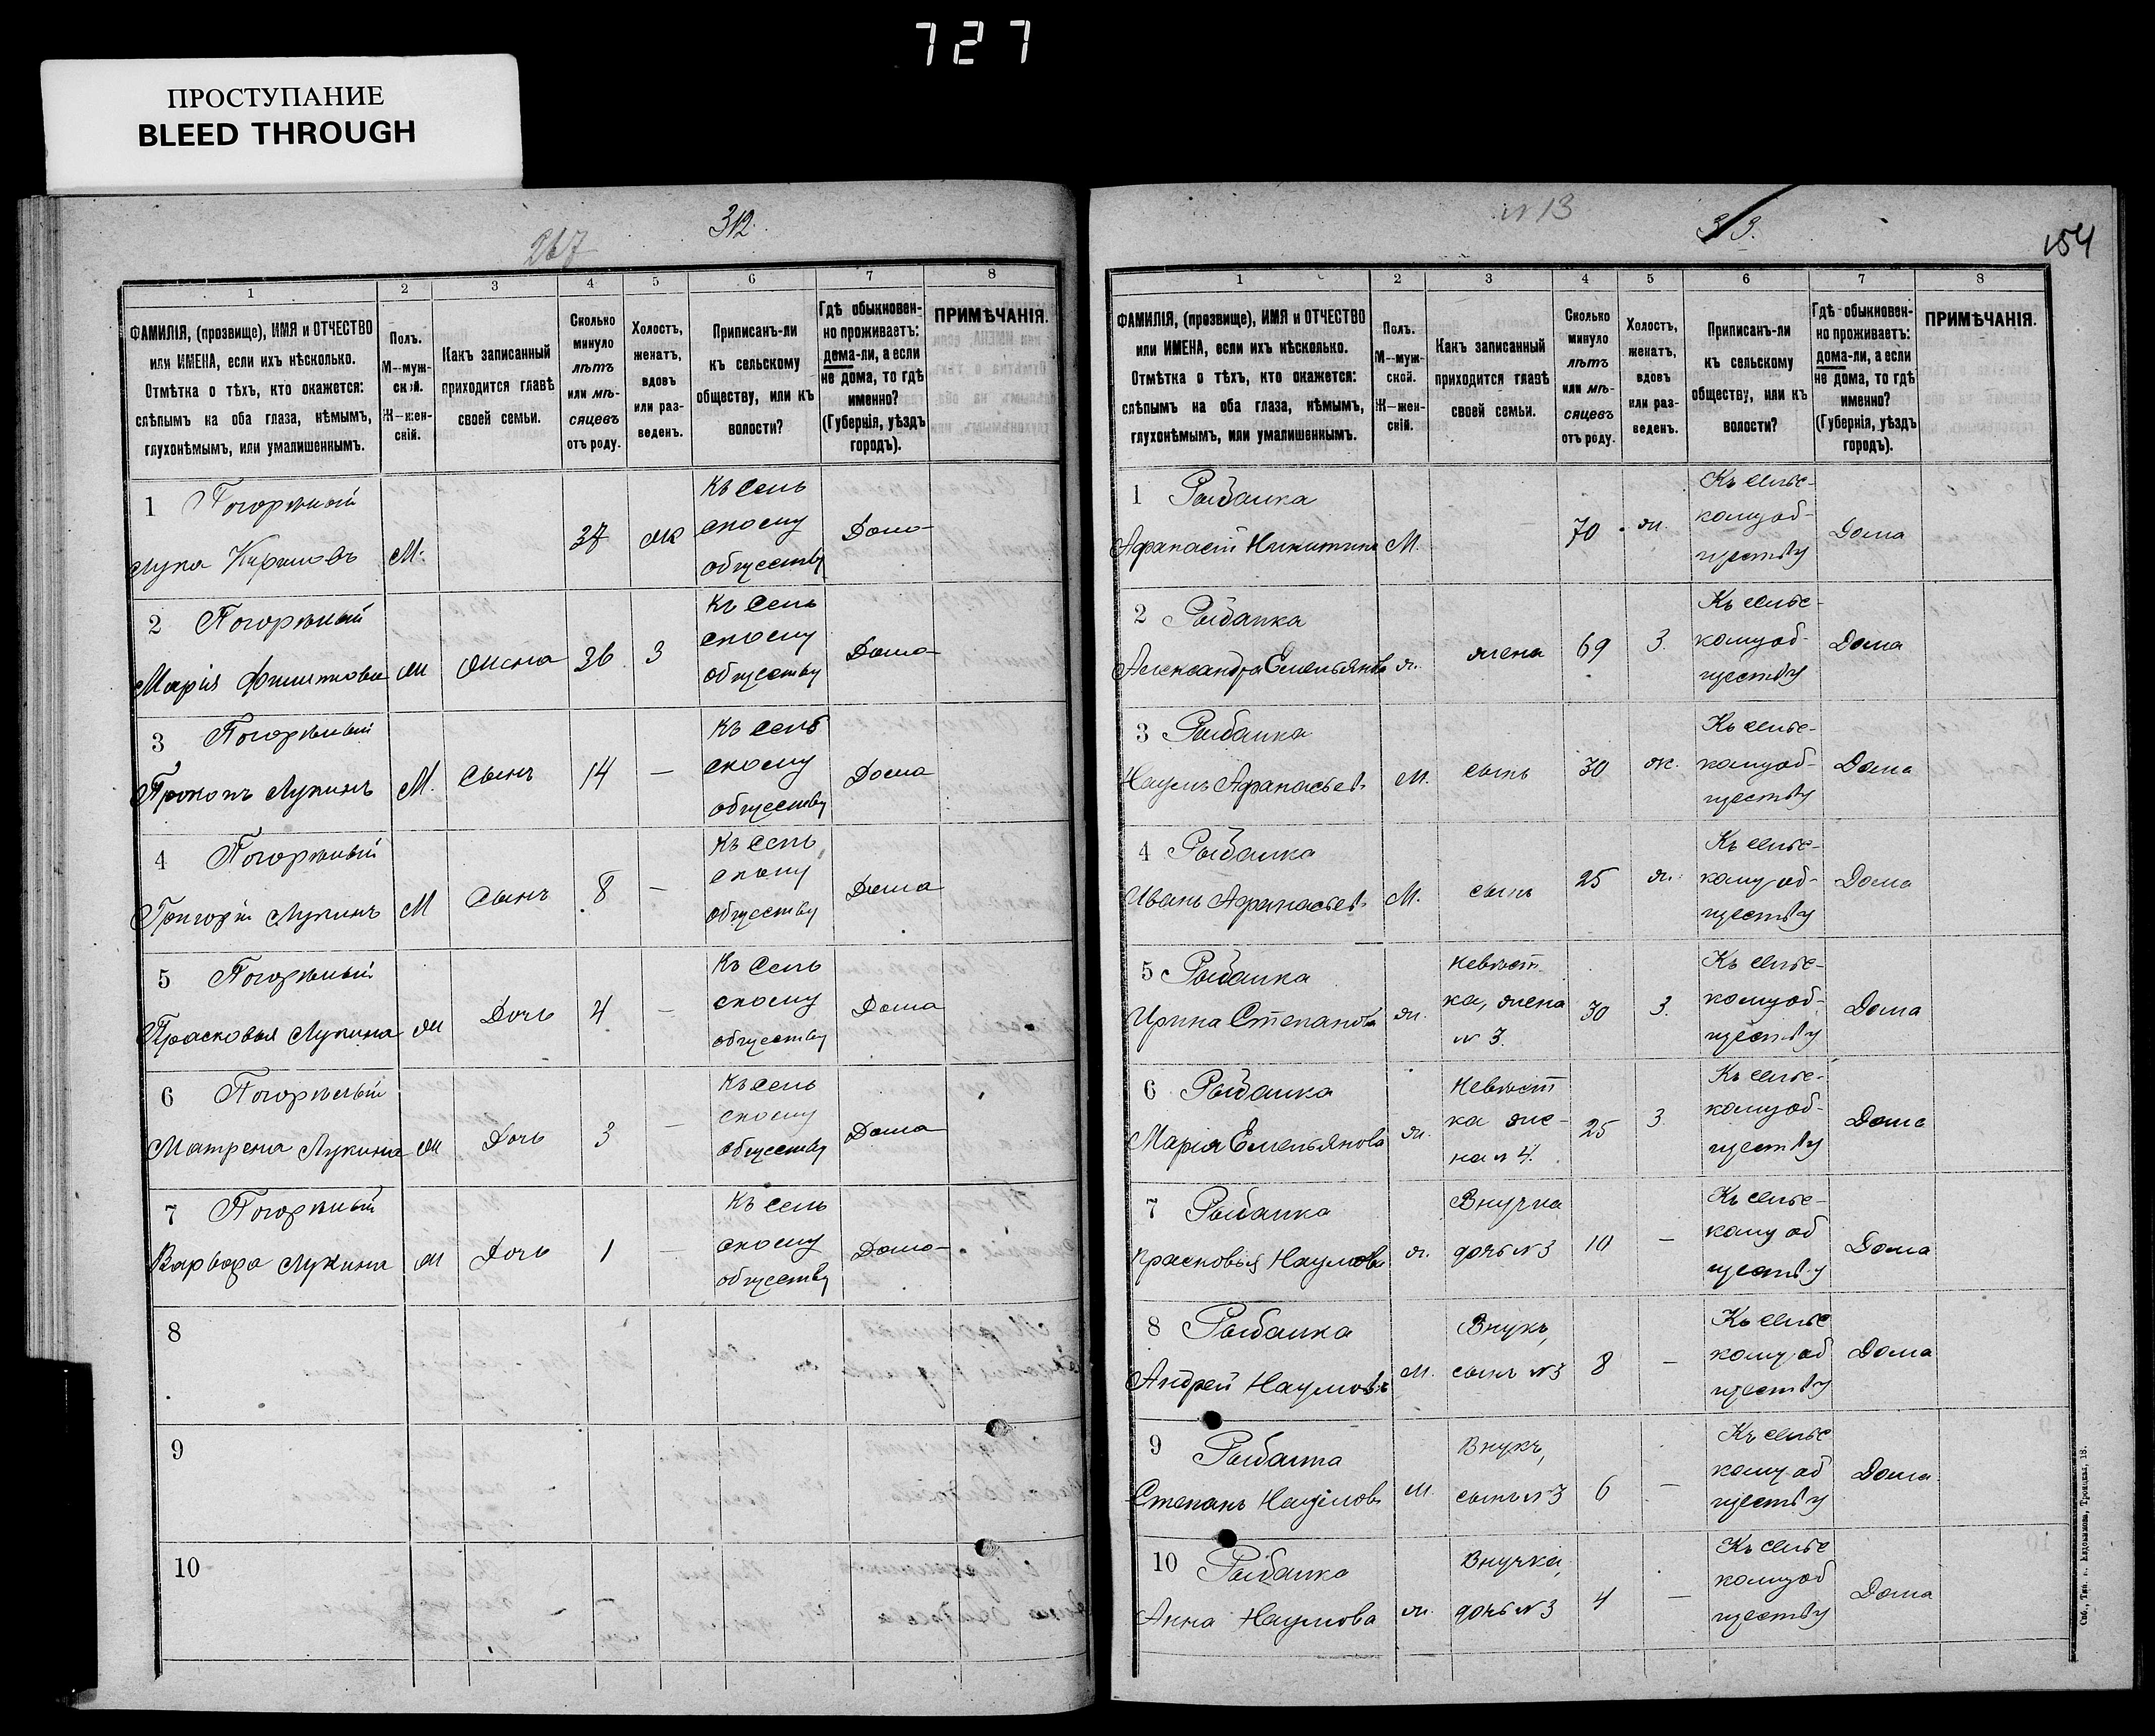 727
ПРОСТУПАНИЕ
BLEED THROUGH
312.
267
1 2 3 4 5 6 7 8
ФАМИЛІЯ, (прозвище), ИМЯ и ОТЧЕСТВО
или ИМЕНА, если ихъ нѣсколько.
Отмѣтка о тѣхъ, кто окажется:
слѣпымъ на оба глаза, нѣмымъ,
глухонѣмымъ, или умалишеннымъ.
Полъ.
М—муж-
ской.
Ж—жен-
скій.
Какъ записанный
приходится главѣ
своей семьи.
Сколько
минуло
лѣтъ
или мѣ-
сяцевъ
отъ роду.
Холостъ,
женатъ,
вдовъ
или раз-
веденъ.
Приписанъ-ли
къ сельскому
обществу, или къ
волости?
Гдѣ обыкновен-
но проживаетъ:
дома-ли, а если
не дома, то гдѣ
именно?
(Губернія, уѣздъ
городъ).
ПРИМѢЧАНІЯ.
1 Погорѣлый
Лука Кириловъ М. 37 ж Къ сель
скому
обществу Дома
2 Погорѣлый
Марія Филиппова ж жена 36 З Къ сель
скому
обществу Дома
3 Погорѣлый
Прокопъ Лукинъ М. Сынъ 14 — Къ сель
скому
обществу Дома
4 Погорѣлый
Григорій Лукинъ М Сынъ 8 — Къ сель
скому
обществу Дома
5 Погорѣлый
Прасковья Лукина ж Дочь 4 — Къ сель
скому
обществу Дома
6 Погорѣлый
Матрена Лукина ж Дочь 3 — Къ сель
скому
обществу Дома
7 Погорѣлый
Варвара Лукина ж Дочь 1 — Къ сель
скому
обществу Дома
8
9
10
№ 13
313.
154
1 2 3 4 5 6 7 8
ФАМИЛІЯ, (прозвище), ИМЯ и ОТЧЕСТВО
или ИМЕНА, если ихъ нѣсколько.
Отмѣтка о тѣхъ, кто окажется:
слѣпымъ на оба глаза, нѣмымъ,
глухонѣмымъ, или умалишеннымъ.
Полъ.
М—муж-
ской.
Ж—жен-
скій.
Какъ записанный
приходится главѣ
своей семьи.
Сколько
минуло
лѣтъ
или мѣ-
сяцевъ
отъ роду.
Холостъ,
женатъ,
вдовъ
или раз-
веденъ.
Приписанъ-ли
къ сельскому
обществу, или къ
волости?
Гдѣ обыкновен-
но проживаетъ:
дома-ли, а если
не дома, то гдѣ
именно?
(Губернія, уѣздъ
городъ).
ПРИМѢЧАНІЯ.
1 Рыбалка
Афанасій Никитинъ М. 70 ж. Къ сельс-
кому об-
ществу Дома
2 Рыбалка
Александра Емельянова ж. жена 69 З. Къ сельс-
кому об-
ществу Дома
3 Рыбалка
Наумъ Афанасьевъ М. сынъ 30 ж. Къ сельс-
кому об-
ществу Дома
4 Рыбалка
Иванъ Афанасьевъ М. сынъ 25 ж. Къ сельс-
кому об-
ществу Дома
5 Рыбалка
Ирина Степанова ж. невѣст-
ка, жена
№ 3. 30 З. Къ сельс-
кому об-
ществу Дома
6 Рыбалка
Марія Емельянова ж. невѣст
ка же-
на № 4. 25 З. Къ сельс-
кому об-
ществу Дома
7 Рыбалка
Прасковья Наумова ж. Внучка
дочь № 3 10 — Къ сельс-
кому об
ществу Дома
8 Рыбалка
Андрей Наумовъ М. Внукъ,
сынъ № 3 8 — Къ сельс
кому об
ществу Дома
9 Рыбалка
Степанъ Наумовъ М. Внукъ,
сынъ № 3 6 — Къ сельс
кому об
ществу Дома
10 Рыбалка
Анна Наумова ж. Внучка,
дочь № 3 4 — Къ сельс
кому об
ществу Дома